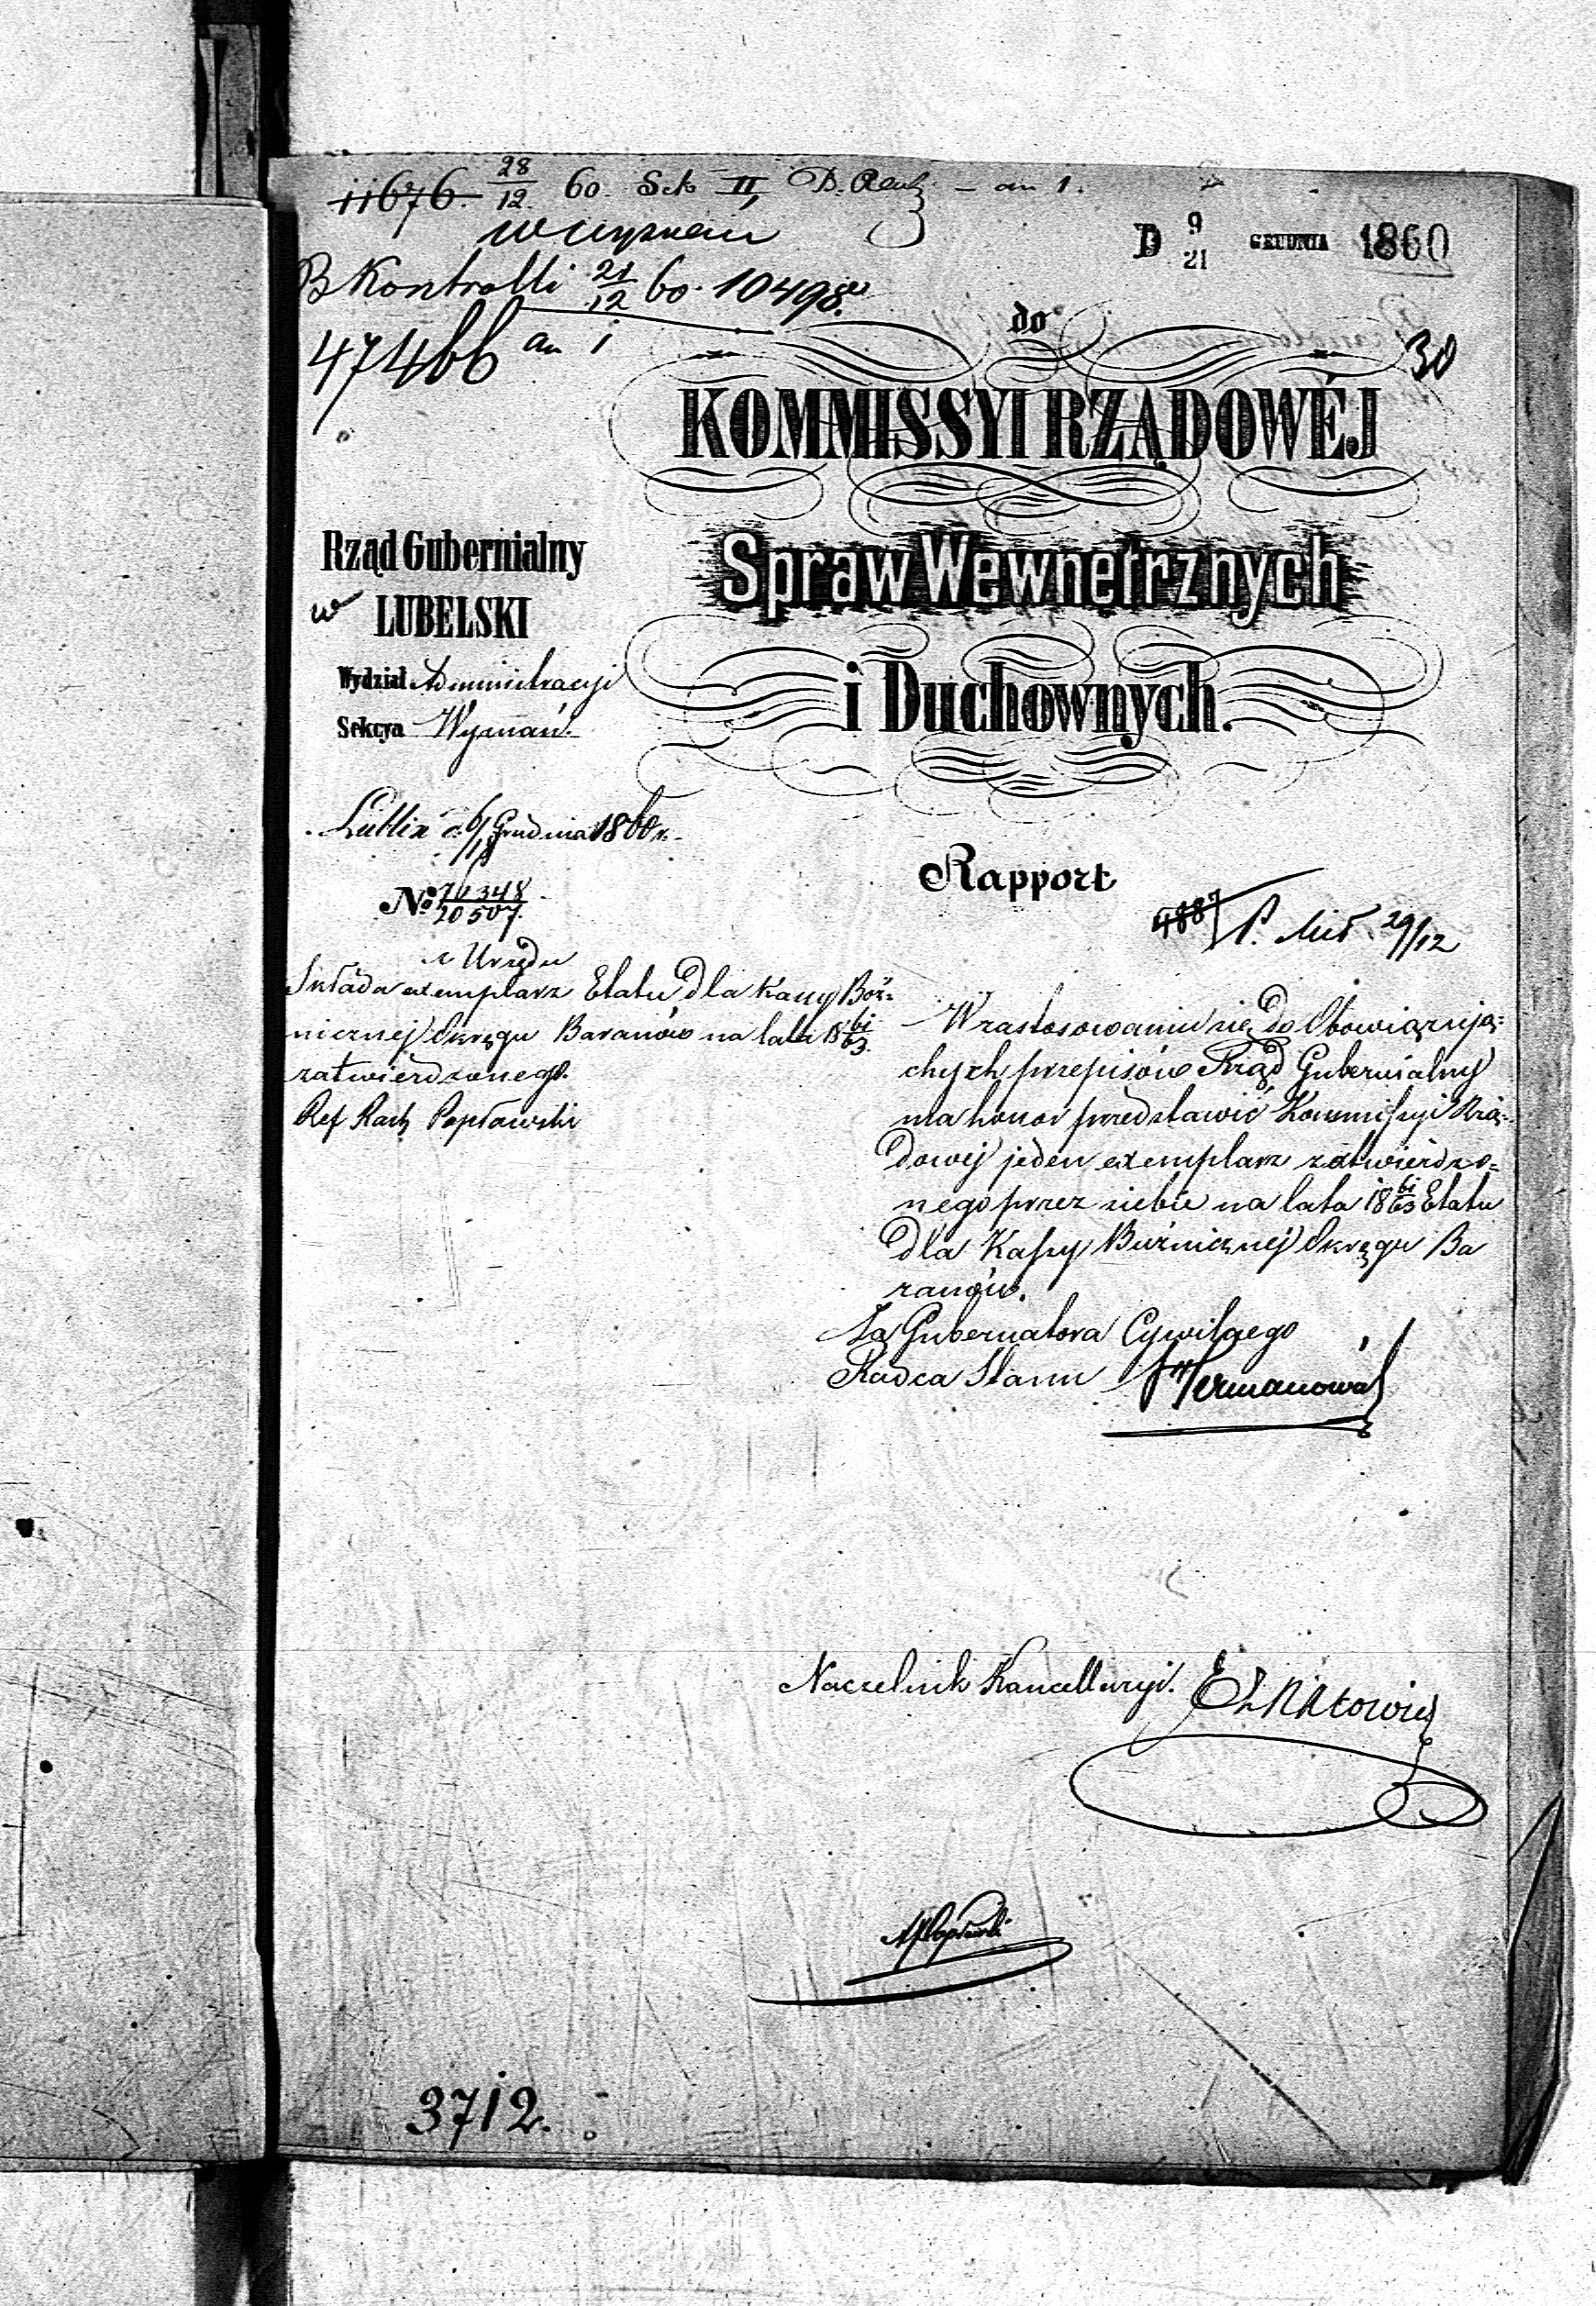 11676. 28/12 60. Sek II, B. Rach. – an 1.
D 9/21 GRUDNIA 1860
B Kontrolli 21/12 60. 10498.
47466 an 1
do
30
KOMMISSYI RZĄDOWÉJ
Spraw Wewnętrznych
i Duchownych.
Rząd Gubernialny
w LUBELSKI
Wydział Administracyi
Sekcya Wyznań.
Lublin d. 6/18 Grudnia 1860 r.
No 76348/20507.
Rapport
4887 29/12
z Urzędu
Składa exemplarz Etatu dla Kassy Boż=
nicznej Okręgu Baranów na lata 1861/63.
zatwierdzonego.
Ref Rach Popławski
W zastosowaniu się do Obowiązują=
chych przepisów Rząd Gubernialny
ma honor przedstawić Kommissyi Rzą=
dowej jeden exemplarz zatwierdzo=
nego przez siebie na lata 1861/63 Etatu
dla Kassy Bużnicznej Okręgu Ba
ranów.
Za Gubernatora Cywilnego
Radca Stanu
Naczelnik Kancellaryi.
Popławski
3712.